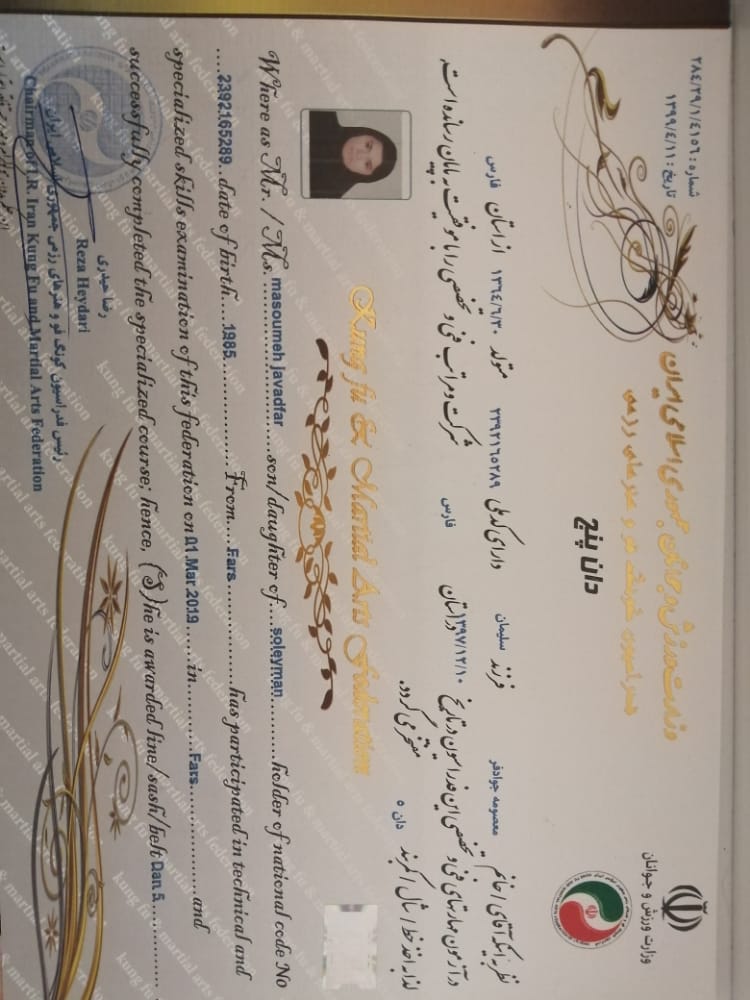 شماره: ۲۸۴/۳۹/۱/۴۱۵۶
تاریخ: ۱۳۹۹/۴/۱۱
وزارت ورزش و جوانان جمهوری اسلامی ایران
فدراسیون کونگ فو و هنرهای رزمی
وزارت ورزش و جوانان
دان پنج
نظر به اینکه آقای / خانم معصومه جوادفر فرزند سلیمان دارای کد ملی ۲۳۹۲۱۶۵۲۸۹ متولد ۱۳۶۴/۶/۳۰ از استان فارس
در آزمون مهارتهای فنی و تخصصی این فدراسیون در تاریخ ۱۳۹۷/۱۲/۱۰ در استان فارس شرکت و مراتب فنی و تخصصی را با موفقیت به پایان رسانده است.
لذا به اخذ خط / شال / کمربند دان ۵ مفتخر می گردد.
Kung fu & Martial Arts Federation
Where as Mr. / Ms. masoumeh javadfar son/daughter of soleyman holder of national code No
2392165289 date of birth 1985 From Fars has participated in technical and
specialized skills examination of this federation on 01 Mar 2019 in Fars and
successfully completed the specialized course; hence, (S)he is awarded line/sash/belt Dan 5
رضا حیدری
Reza Heydari
رئیس فدراسیون کونگ فو و هنرهای رزمی جمهوری اسلامی ایران
Chairman of I.R. Iran Kung Fu and Martial Arts Federation